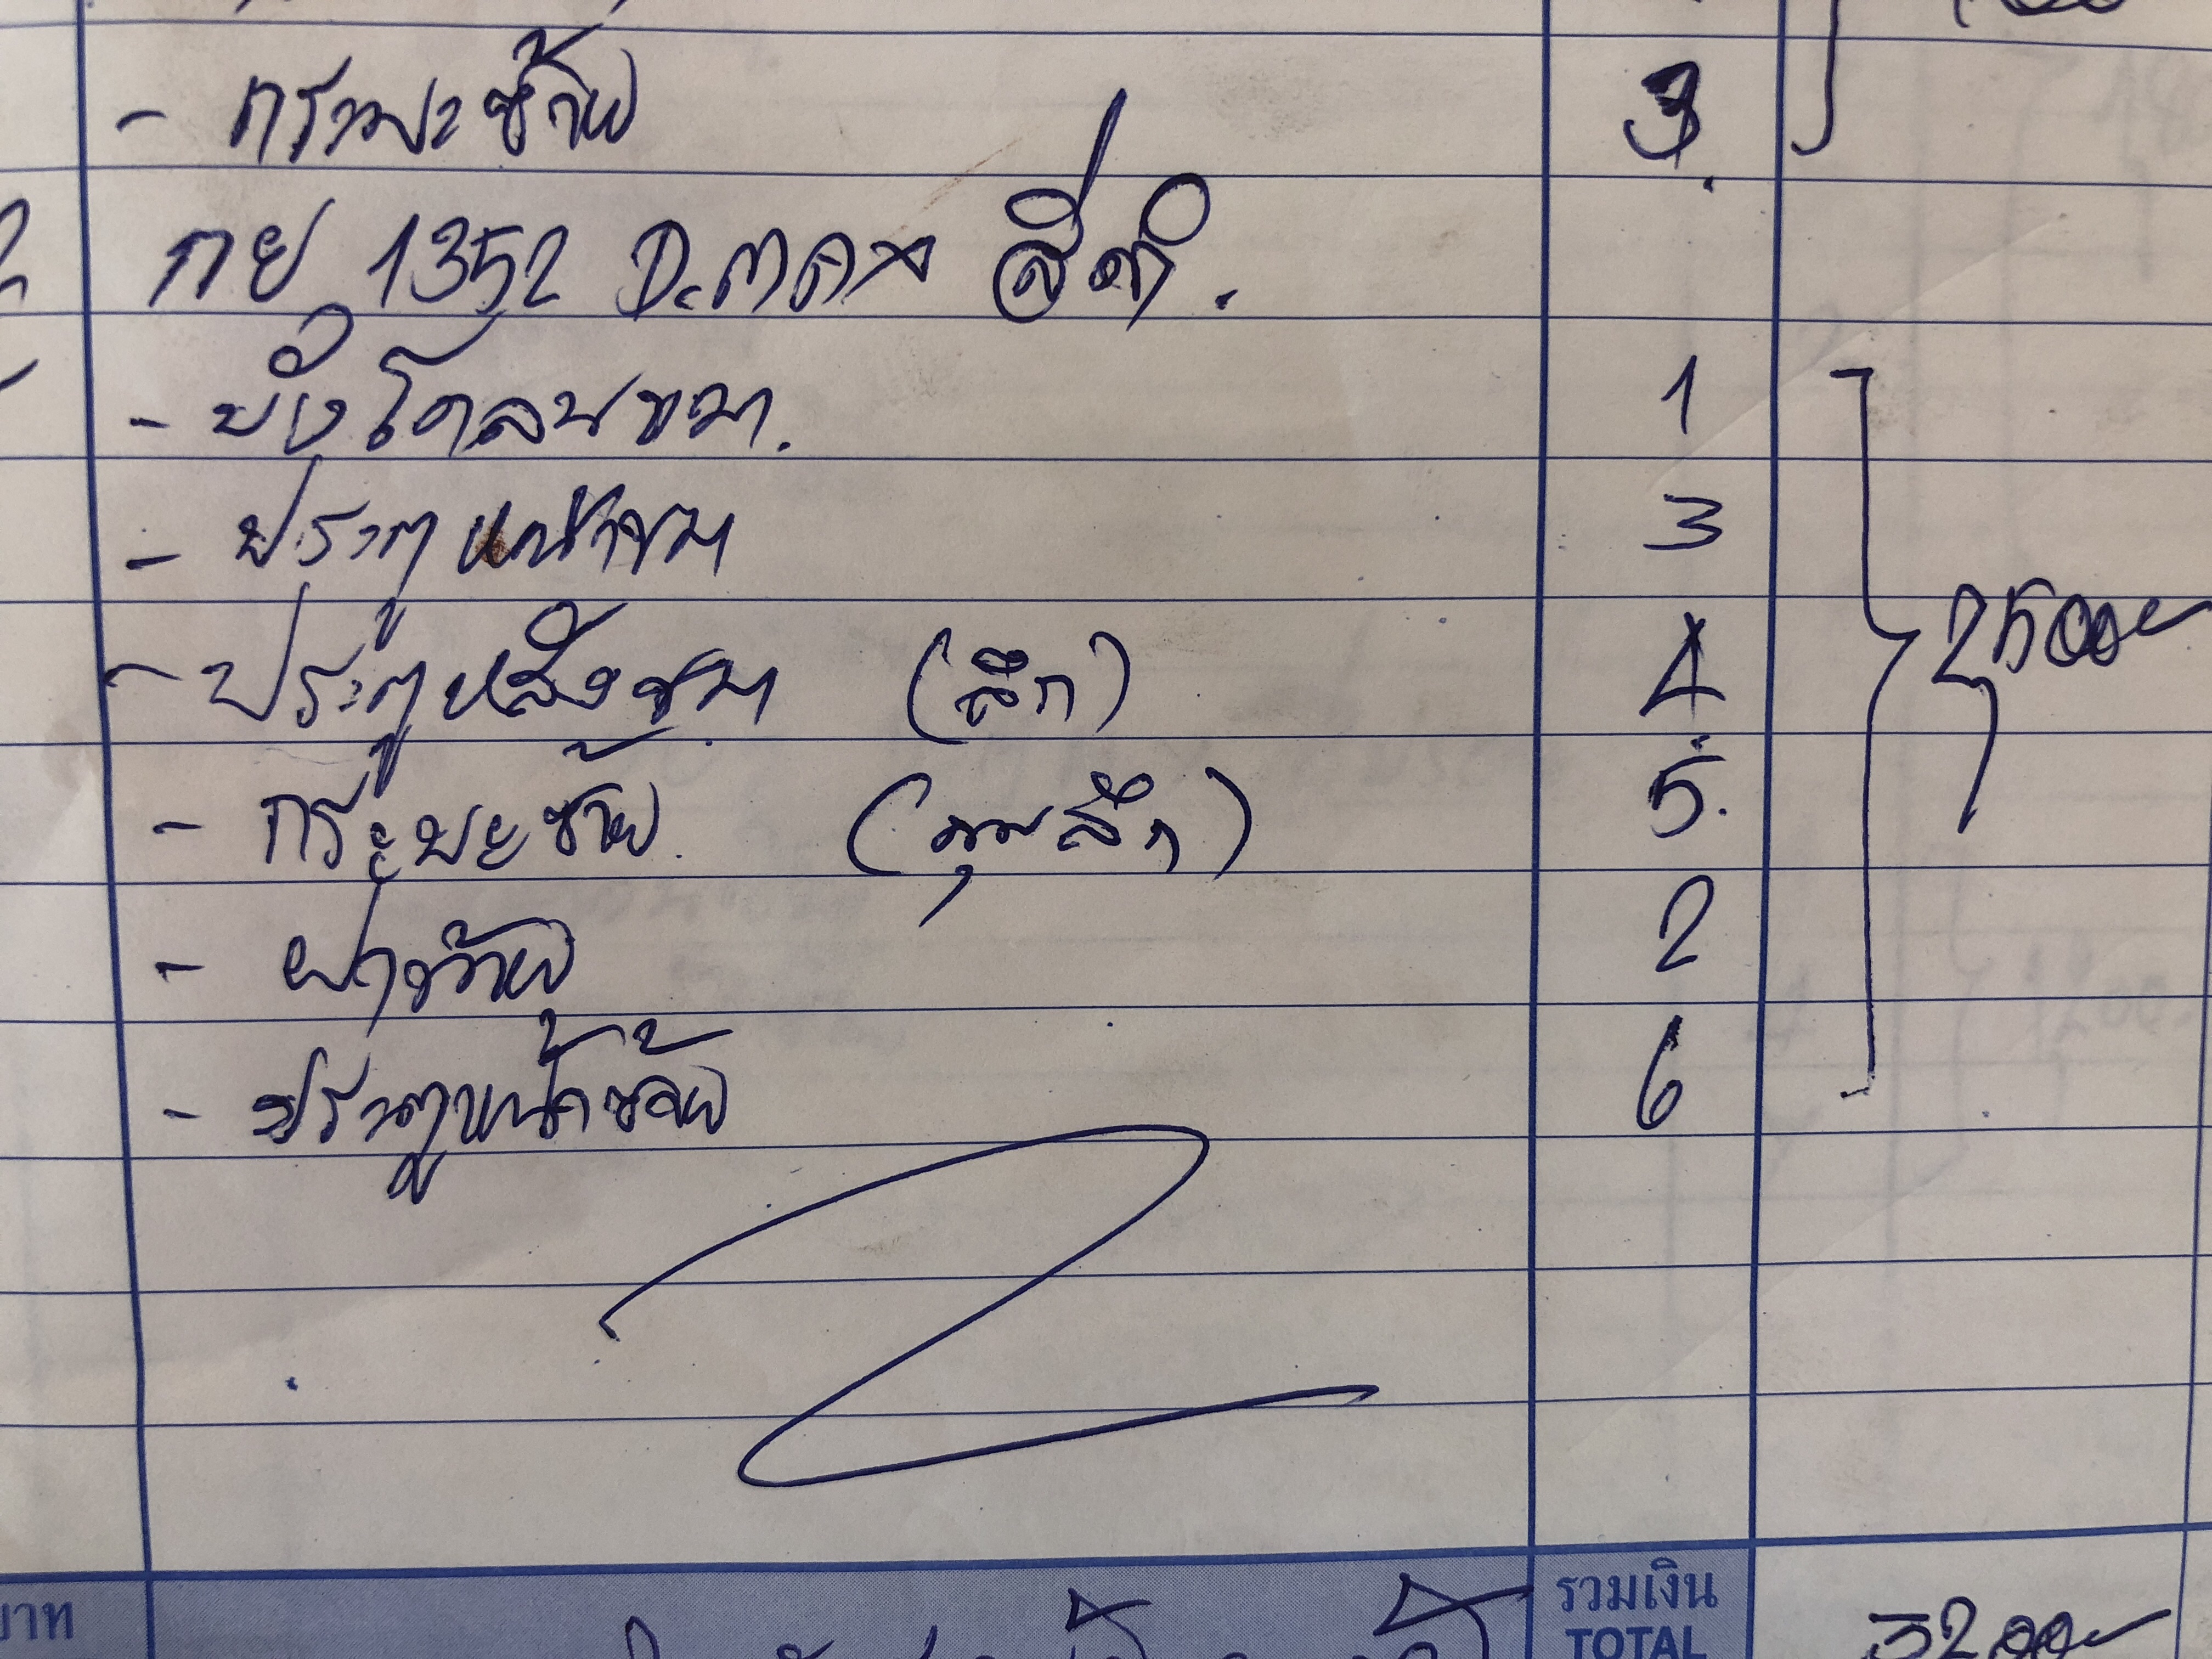 - กระบะซ้าย 3.
กย 1352 D.max สีดำ.
- บังโคลนขวา. 1
- ประตูหน้าขวา 3
- ประตูหลังขวา (ลึก) 4 2,500-
- กระบะซ้าย (มุมลึก) 5.
- ฝาท้าย 2
- ประตูหน้าซ้าย 6
บาท รวมเงิน
TOTAL 3200-